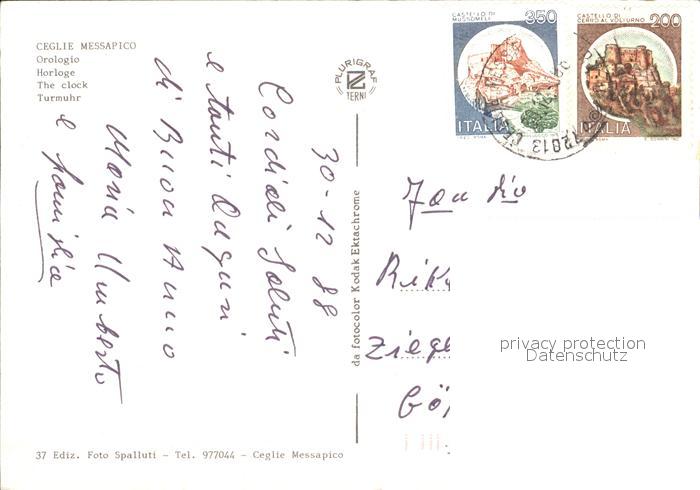 CEGLIE MESSAPICO
Orologio
Horloge
The clock
Turmuhr
30-12 88
Cordiali Saluti
e tanti Auguri
di Buon Anno
Maria Umberto
e famiglia
PLURIGRAF
TERNI
da fotocolor Kodak Ektachrome
CASTELLO DI MUSSOMELI
350
ITALIA
CASTELLO DI CERRO AL VOLTURNO
200
ITALIA
72013
Rik
Ziege
Gö
privacy protection
Datenschutz
37 Ediz. Foto Spalluti - Tel. 977044 - Ceglie Messapico